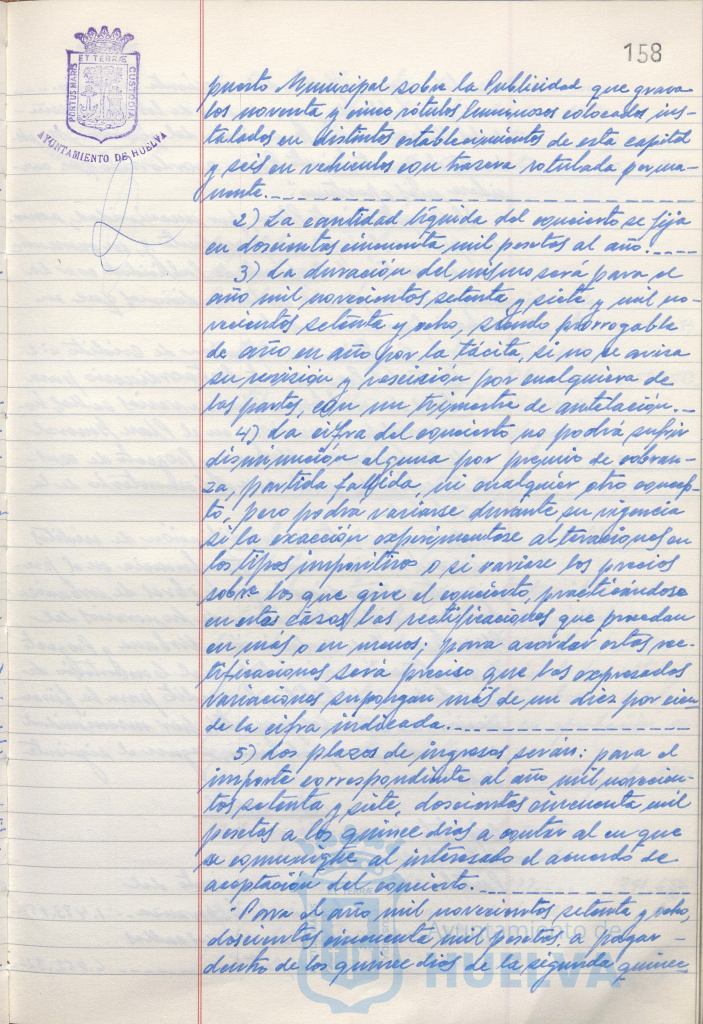 158
ET TERRÆ
PORTUS MARIS
CUSTODIA
AYUNTAMIENTO DE HUELVA
puesto Municipal sobre la Publicidad que grava
los noventa y cinco rótulos luminosos colocados ins-
talados en distintos establecimientos de esta capital
y seis en vehículos con trasera rotulada perma-
nente.
2) La cantidad líquida del concierto se fija
en doscientas cincuenta mil pesetas al año.
3) La duración del mismo será para el
año mil novecientos setenta y siete y mil no-
vecientos setenta y ocho, siendo prorrogable
de año en año por la tácita, si no se avisa
su revisión y rescisión por cualquiera de
las partes, con un trimestre de antelación.
4) La cifra del concierto no podrá sufrir
disminución alguna por premio de cobran-
za, partida fallida, ni cualquier otro concep-
to, pero podrá variarse durante su vigencia
si la exacción experimentase alteraciones en
los tipos impositivos o si variase los precios
sobre los que gire el concierto, practicándose
en estos casos las rectificaciones que procedan
en más o en menos; para acordar estas rec-
tificaciones será preciso que las expresadas
variaciones supongan más de un diez por cien
de la cifra indicada.
5) Los plazos de ingresos serán: para el
importe correspondiente al año mil novecien-
tos setenta y siete, doscientas cincuenta mil
pesetas a los quince días a contar al en que
se comunique al interesado el acuerdo de
aceptación del concierto.
Para el año mil novecientos setenta y ocho,
doscientas cincuenta mil pesetas, a pagar
dentro de los quince días de la segunda quince
Ayuntamiento de
HUELVA